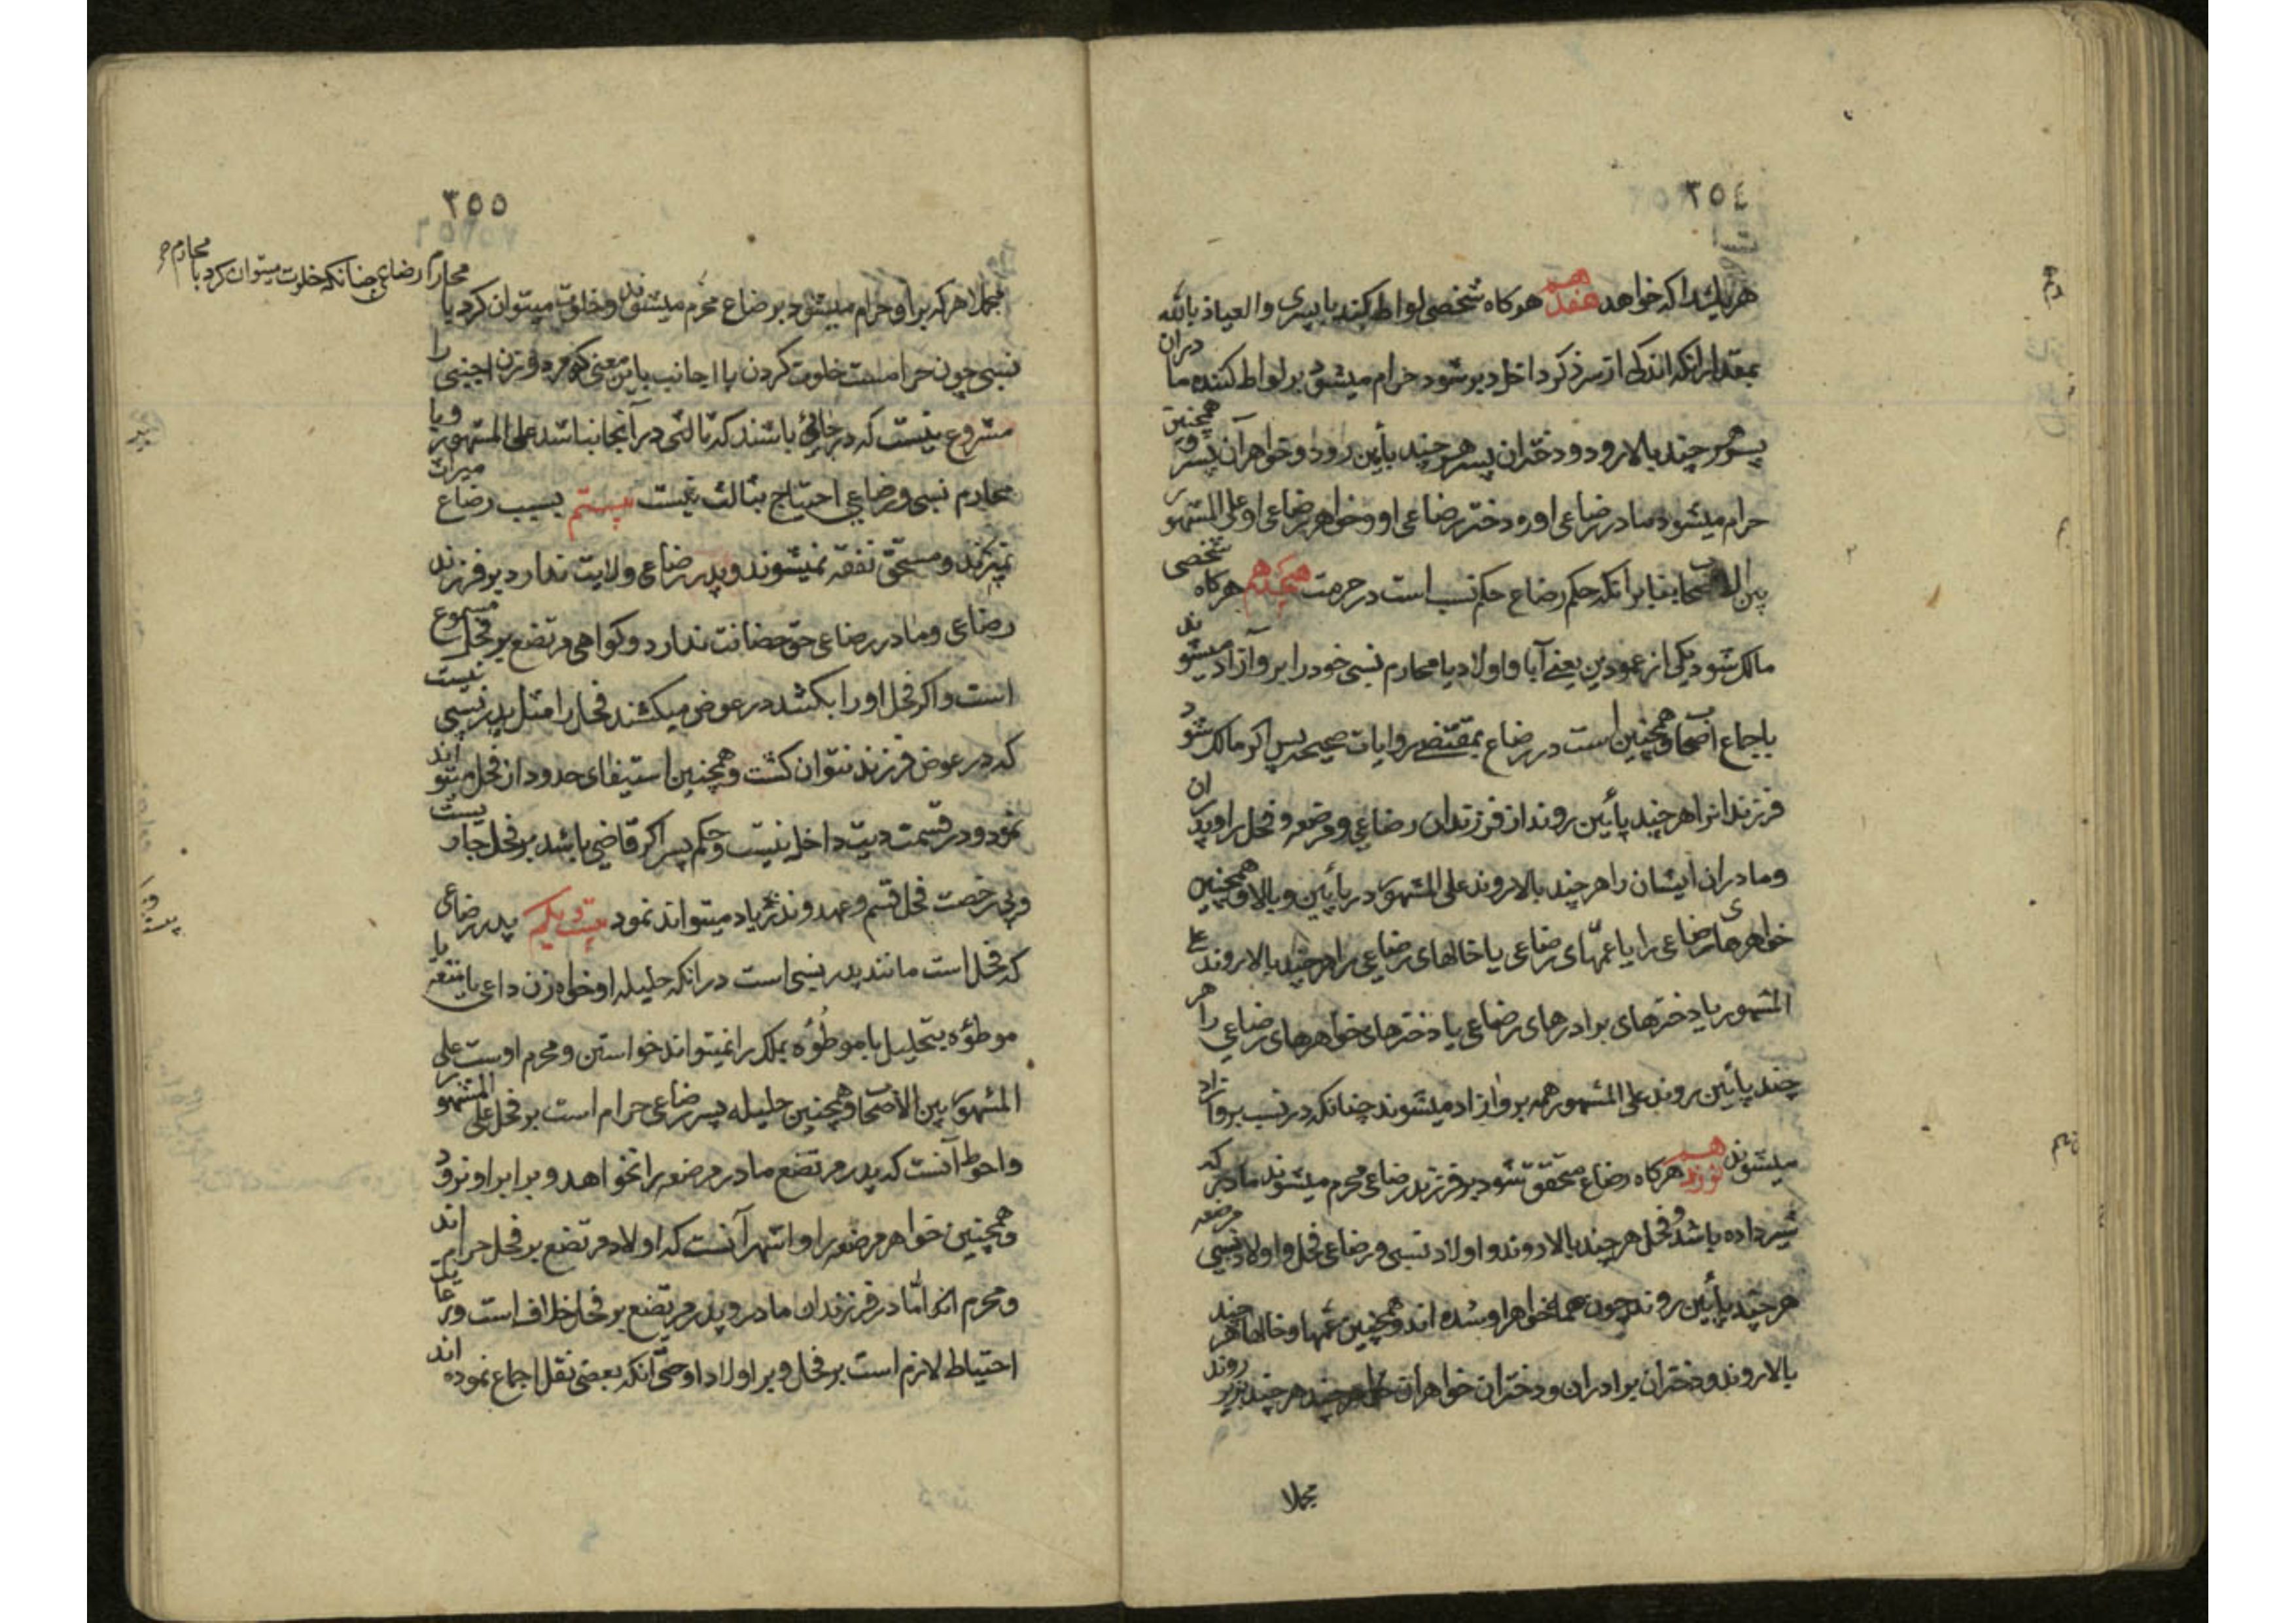 ٣٥٤
هر یك را که خواهد هفدهم هرکاه شخصی لواطه کند با پسری والعیاذ بالله
بمقدار انکه اندکی از سر ذکر داخل دبر شود حرام میشود بر لواط کننده مادران
پسر هر چند بالا رود و دختران پسر هر چند پأین رود و خواهر آن پسر و همچنین
حرام میشود مادر رضاعی او و دختر رضاعی او و خواهر رضاعی او علی المشهور
بین الاصحاب بنا بر انکه حکم رضاع حکم نسب است در حرمت هیجدهم هرکاه شخصی
مالك شود یکی از عمودین یعنی آبا و اولاد یا محارم نسبی خود را بر او آزاد میشوند
باجماع اصحاب و همچنین است در رضاع بمقتضی روایات صحیحه پس اکر مالك شود
فرزندانرا هر چند پأیین روند از فرزندان رضاعی و مرضعه و فحل را و پدران
و مادران ایشان را هر چند بالا روند علی المشهور در پأیین و بالا و همچنین
خواهرهای رضاعی را یا عمّهای رضاعی یا خالهای رضاعی را هر چند بالا روند علی
المشهور یا دخترهای برادرهای رضاعی یا دخترهای خواهرهای رضاعی را هر
چند پأیین روند علی المشهور همه بر او ازاد میشوند چنانکه در نسب بر او ازاد
میشوند نوزدهم هرکاه رضاع متحقق شود بر فرزند رضاعی محرم میشوند مادر که
شیر داده باشد و فحل هر چند بالا روند و اولاد نسبی و رضاعی فحل و اولاد نسبی مرضعه
هر چند پأیین روند چون همه خواهر او شده اند و همچنین عمّها و خالها هر چند
بالا روند و دختران برادران و دختران خواهران هر چند بزیر روند
مجملا
٣٥٥
محارم رضاعی چنانکه خلوت میتوان کرد با محارم
مجملا هرکه بر او حرام میشود برضاع محرم میشوند و خلوت میتوان کرد با
نسبی چون حرامست خلوت کردن با اجانب باین معنی که مرد و زن اجنبی را
مشروع نیست که در جائی باشند که ثالثی در آنجا نباشد علی المشهور و با
محارم نسبی و رضاعی احتیاج بثالث نیست بیستم بسبب رضاع میراث
نمیبرند و مستحق نفقه نمیشوند و پدر رضاعی ولایت ندارد بر فرزند
رضاعی و مادر رضاعی حق حضانت ندارد و کواهی مرتضع بر فحل مسموع
است و اکر فحل او را بکشد در عوض میکشند فحل را مثل پدر نسبی نیست
که در عوض فرزند نتوان کشت و همچنین استیفای حدود از فحل میتواند
نمود و در قسمت دیت داخل نیست و حکم پسر اکر قاضی باشد بر فحل جاریست
و بی رخصت فحل قسم و عهد و نذر یاد میتواند نمود بیست و یکم پدر رضاعی
که فحل است مانند پدر نسبی است در انکه حلیله او خواه زن داعی یا متعه یا
موطوُه بتحلیل یا موطوُه بملك را نمیتواند خواستن و محرم اوست علی
المشهور بین الاصحاب و همچنین حلیله پسر رضاعی حرام است بر فحل علی المشهور
و احوط آنست که پدر مرتضع مادر مرضعه را نخواهد و برابر او نرود
و همچنین خواهر مرضعه را و اشهر آنست که اولاد مرتضع بر فحل حرام اند
و محرم اند امّا در فرزندان مادر و پدر مرتضع بر فحل خلاف است و رعایت
احتیاط لازم است بر فحل و بر اولاد او حتّی انکه بعضی نقل اجماع نموده اند